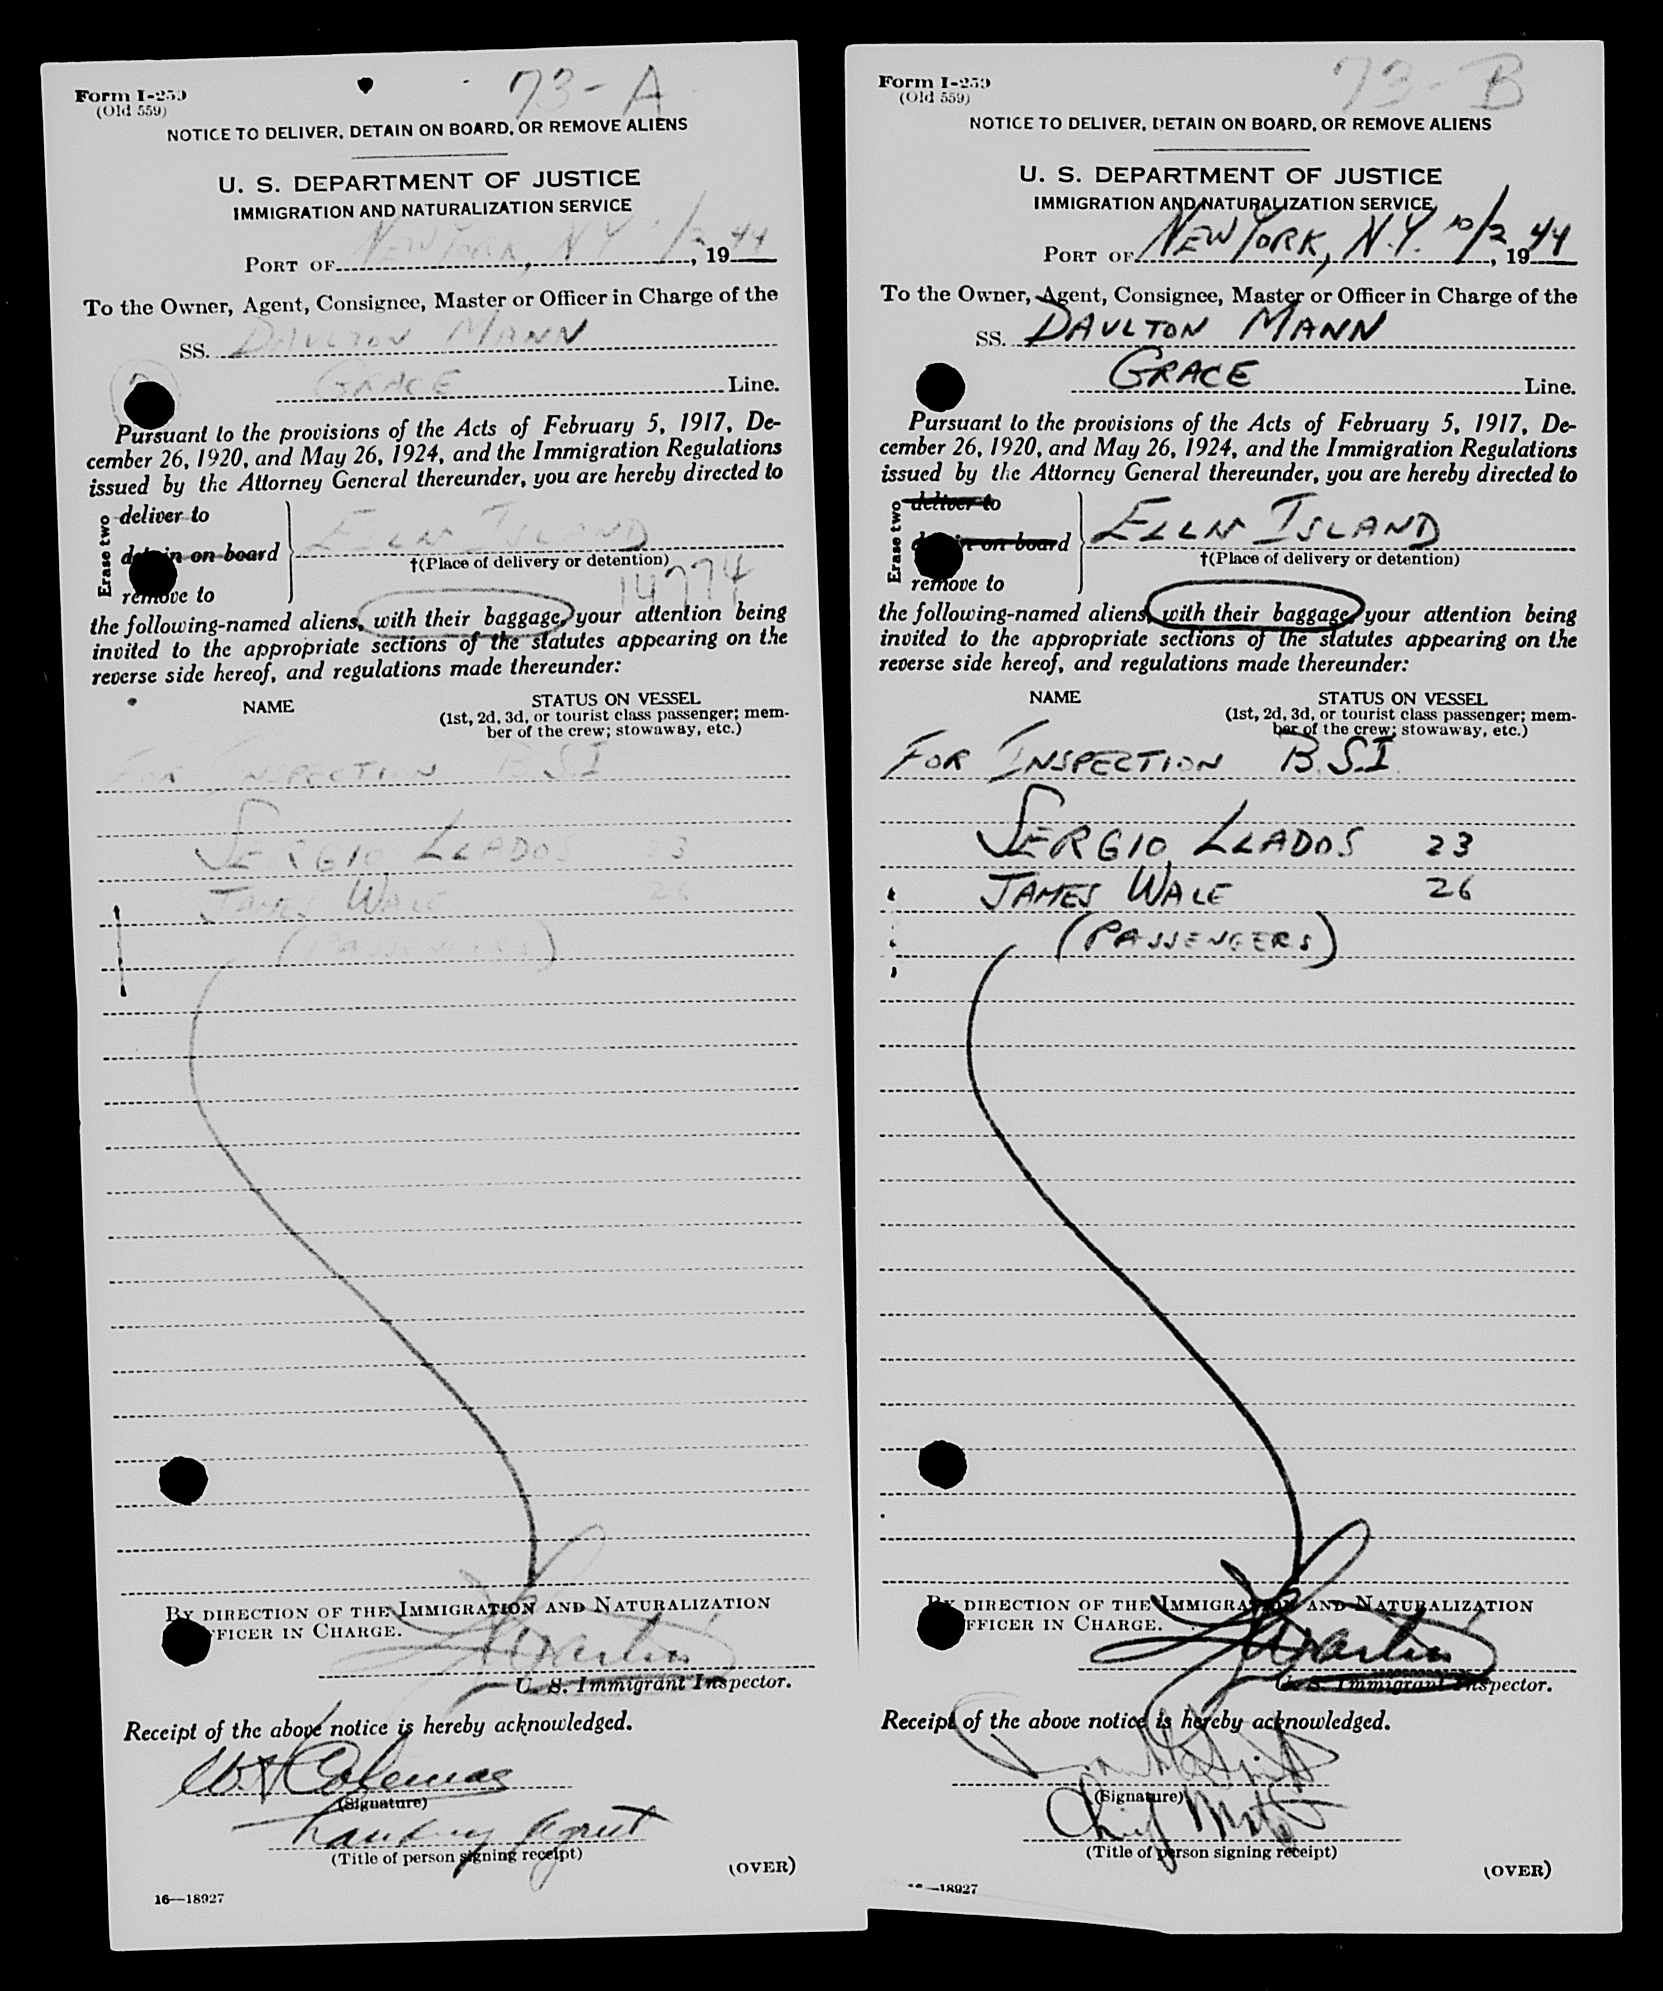 73-A
Form I-259
(Old 559)
NOTICE TO DELIVER, DETAIN ON BOARD, OR REMOVE ALIENS
U. S. DEPARTMENT OF JUSTICE
IMMIGRATION AND NATURALIZATION SERVICE
PORT OF NEW YORK, NY /2, 1944
To the Owner, Agent, Consignee, Master or Officer in Charge of the
SS. DAULTON MANN
GRACE Line.
Pursuant to the provisions of the Acts of February 5, 1917, De-
cember 26, 1920, and May 26, 1924, and the Immigration Regulations
issued by the Attorney General thereunder, you are hereby directed to
Erase two
deliver to
detain on board
remove to
ELLN ISLAND
†(Place of delivery or detention)
14774
the following-named aliens, with their baggage, your attention being
invited to the appropriate sections of the statutes appearing on the
reverse side hereof, and regulations made thereunder:
NAME
STATUS ON VESSEL
(1st, 2d, 3d, or tourist class passenger; mem-
ber of the crew; stowaway, etc.)
FOR INSPECTION B.S.I
SERGIO LLADOS 23
JAMES WALE 26
(PASSENGERS)
BY DIRECTION OF THE IMMIGRATION AND NATURALIZATION
OFFICER IN CHARGE.
Martin
U. S. Immigrant Inspector.
Receipt of the above notice is hereby acknowledged.
Coleman
(Signature)
Landing Agent
(Title of person signing receipt)
(OVER)
16—18927
73-B
Form I-259
(Old 559)
NOTICE TO DELIVER, DETAIN ON BOARD, OR REMOVE ALIENS
U. S. DEPARTMENT OF JUSTICE
IMMIGRATION AND NATURALIZATION SERVICE
PORT OF NEW YORK, N.Y. 10/2, 1944
To the Owner, Agent, Consignee, Master or Officer in Charge of the
SS. DAULTON MANN
GRACE Line.
Pursuant to the provisions of the Acts of February 5, 1917, De-
cember 26, 1920, and May 26, 1924, and the Immigration Regulations
issued by the Attorney General thereunder, you are hereby directed to
Erase two
deliver to
detain on board
remove to
ELLN ISLAND
†(Place of delivery or detention)
the following-named aliens, with their baggage, your attention being
invited to the appropriate sections of the statutes appearing on the
reverse side hereof, and regulations made thereunder:
NAME
STATUS ON VESSEL
(1st, 2d, 3d, or tourist class passenger; mem-
ber of the crew; stowaway, etc.)
FOR INSPECTION B.S.I.
SERGIO LLADOS 23
JAMES WALE 26
(PASSENGERS)
BY DIRECTION OF THE IMMIGRATION AND NATURALIZATION
OFFICER IN CHARGE.
Martin
U. S. Immigrant Inspector.
Receipt of the above notice is hereby acknowledged.
(Signature)
Chief
(Title of person signing receipt)
(OVER)
16—18927